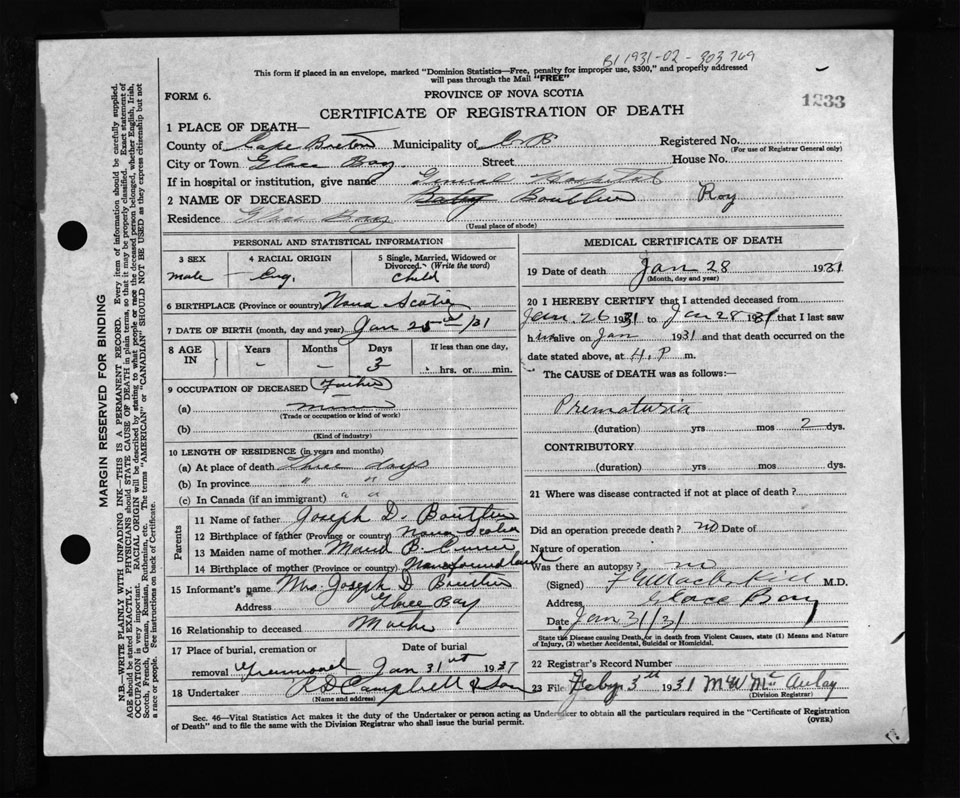 B1 1931-02-303769
This form if placed in an envelope, marked "Dominion Statistics—Free, penalty for improper use, $300," and properly addressed
will pass through the Mail "FREE"
FORM 6. PROVINCE OF NOVA SCOTIA
CERTIFICATE OF REGISTRATION OF DEATH 1233
1 PLACE OF DEATH—
County of Cape Breton Municipality of C. B. Registered No.
(For use of Registrar General only)
City or Town Glace Bay Street House No.
If in hospital or institution, give name General Hospital
2 NAME OF DECEASED Baby Boutlier Roy
Residence Glace Bay
(Usual place of abode)
PERSONAL AND STATISTICAL INFORMATION
3 SEX 4 RACIAL ORIGIN 5 Single, Married, Widowed or
Divorced. (Write the word)
male Eng. Child
6 BIRTHPLACE (Province or country) Nova Scotia
7 DATE OF BIRTH (month, day and year) Jan 25th/31
8 AGE IN Years Months Days If less than one day,
- - 3 hrs. or min.
9 OCCUPATION OF DECEASED Father
(a)
(Trade or occupation or kind of work)
(b)
(Kind of industry)
10 LENGTH OF RESIDENCE (in years and months)
(a) At place of death Three days
(b) In province " "
(c) In Canada (if an immigrant) " "
Parents
11 Name of father Joseph D. Boutlier
12 Birthplace of father (Province or country) Nova Scotia
13 Maiden name of mother Maud B.
14 Birthplace of mother (Province or country) Newfoundland
15 Informant's name Mrs Joseph D Boutlier
Address Glace Bay
16 Relationship to deceased Mother
17 Place of burial, cremation or Date of burial
removal Greenwood Jan 31st 1937
18 Undertaker R D Campbell & Son
(Name and address)
MEDICAL CERTIFICATE OF DEATH
19 Date of death Jan 28 1931
(Month, day and year)
20 I HEREBY CERTIFY that I attended deceased from
Jan. 26 1931 to Jan 28 1931 that I last saw
him alive on Jan 1931 and that death occurred on the
date stated above, at P m.
The CAUSE of DEATH was as follows:—
Prematuria
(duration) yrs mos 2 dys.
CONTRIBUTORY
(duration) yrs mos dys.
21 Where was disease contracted if not at place of death?
Did an operation precede death? no Date of
Nature of operation
Was there an autopsy? no
(Signed) M.D.
Address Glace Bay
Date Jan 31/31
State the Disease causing Death, or in death from Violent Causes, state (1) Means and Nature
of Injury, (2) whether Accidental, Suicidal or Homicidal.
22 Registrar's Record Number
23 File Feby 3th 1931 M W McAulay
(Division Registrar)
Sec. 46—Vital Statistics Act makes it the duty of the Undertaker or person acting as Undertaker to obtain all the particulars required in the "Certificate of Registration
of Death" and to file the same with the Division Registrar who shall issue the burial permit. (OVER)
MARGIN RESERVED FOR BINDING
N.B.—WRITE PLAINLY WITH UNFADING INK—THIS IS A PERMANENT RECORD. Every item of information should be carefully supplied.
AGE should be stated EXACTLY. PHYSICIANS should STATE CAUSE OF DEATH in plain terms, so that it may be properly classified. Exact statement of
OCCUPATION is very important. RACIAL ORIGIN will be described by stating to what people or race the deceased person belonged, whether English, Irish,
Scotch, French, German, Russian, Ruthenian, etc. The terms "AMERICAN" or "CANADIAN" SHOULD NOT BE USED as they express citizenship but not
a race or people. See instructions on back of Certificate.